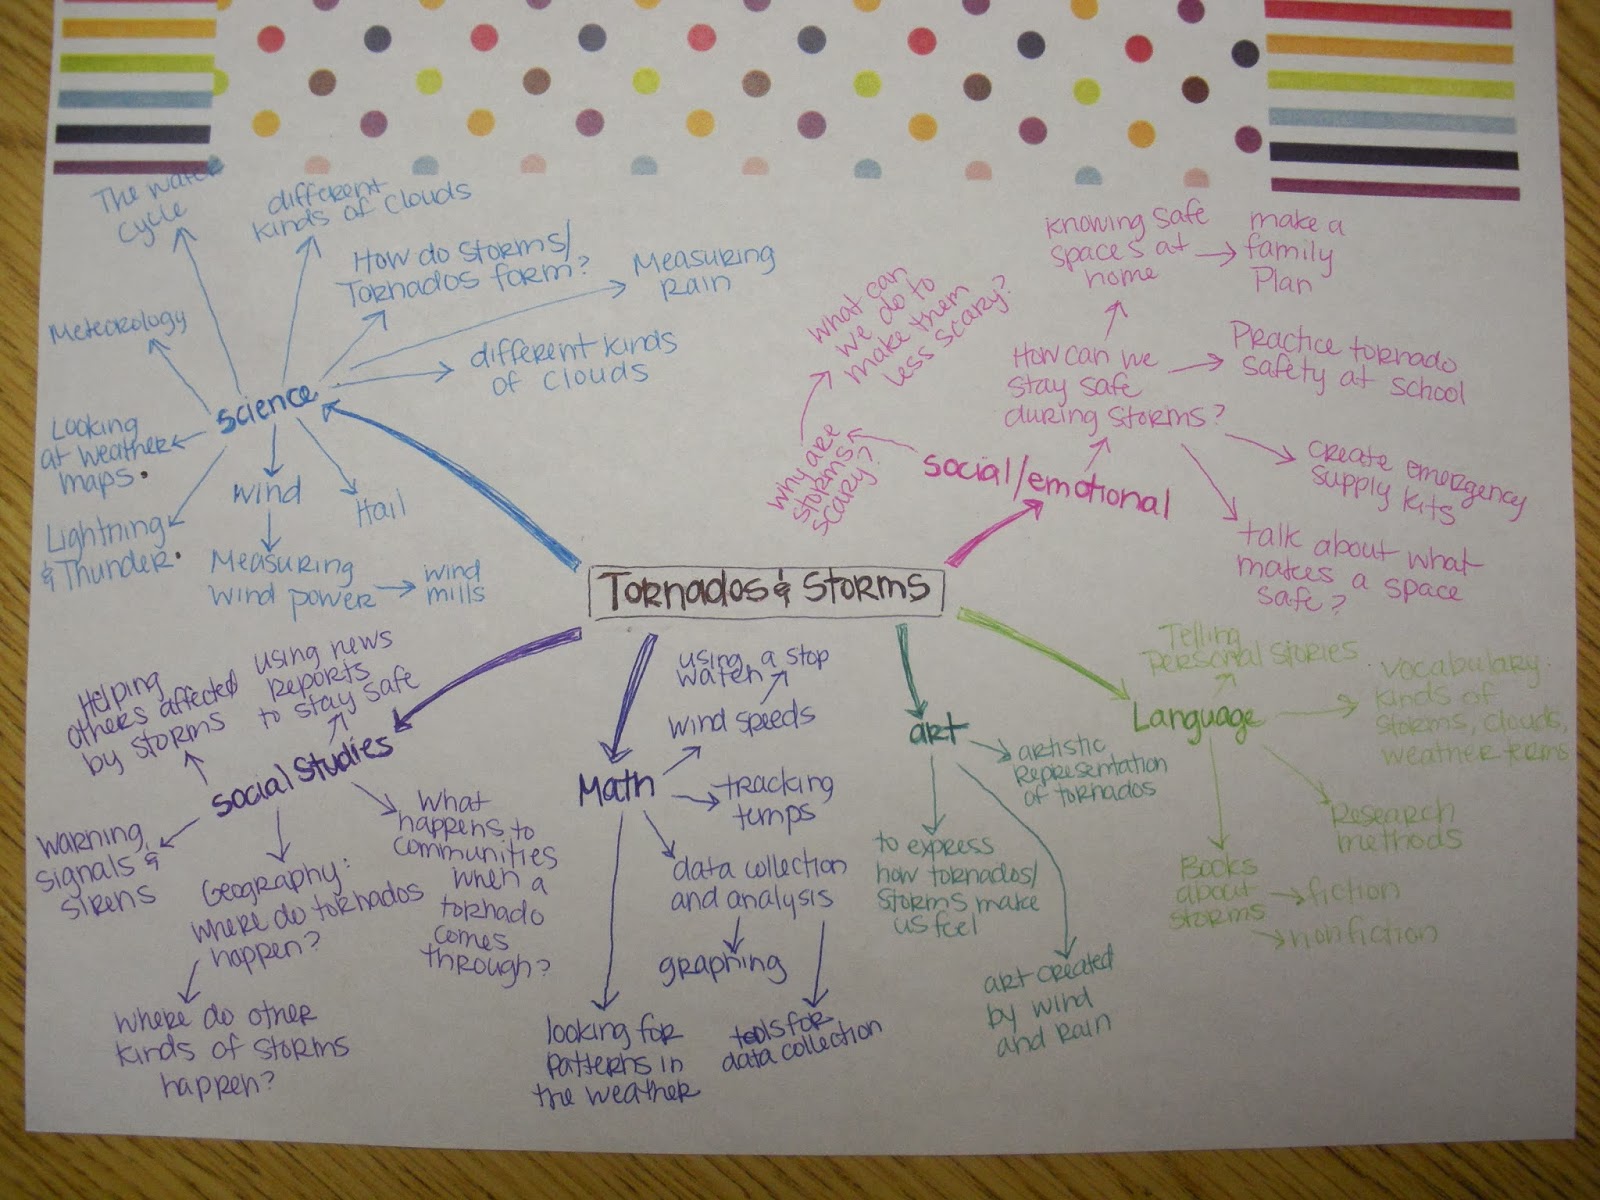 The water
cycle
different
kinds of clouds
How do storms/
Tornados form?
Measuring
rain
different kinds
of clouds
Meteorology
science
Looking
at weather
maps.
Lightning
& Thunder.
wind
Hail
Measuring
wind power
wind
mills
what can
we do to
make them
less scary?
why are
storms
scary?
knowing safe
spaces at
home
make a
family
Plan
How can we
stay safe
during storms?
Practice tornado
safety at school
social/emotional
create emergency
supply kits
talk about what
makes a space
safe?
Tornados & Storms
Helping
others affected
by storms
using news
reports
to stay safe
social studies
warning
signals &
sirens
Geography:
where do tornados
happen?
where do other
kinds of storms
happen?
what
happens to
communities
when a
tornado
comes
through?
using a stop
watch
wind speeds
Math
tracking
temps
data collection
and analysis
graphing
tools for
data collection
looking for
patterns in
the weather
art
artistic
representation
of tornados
to express
how tornados/
storms make
us feel
art created
by wind
and rain
Telling
personal stories
Language
vocabulary
kinds of
storms, clouds,
weather terms
Research
methods
Books
about
storms
fiction
nonfiction